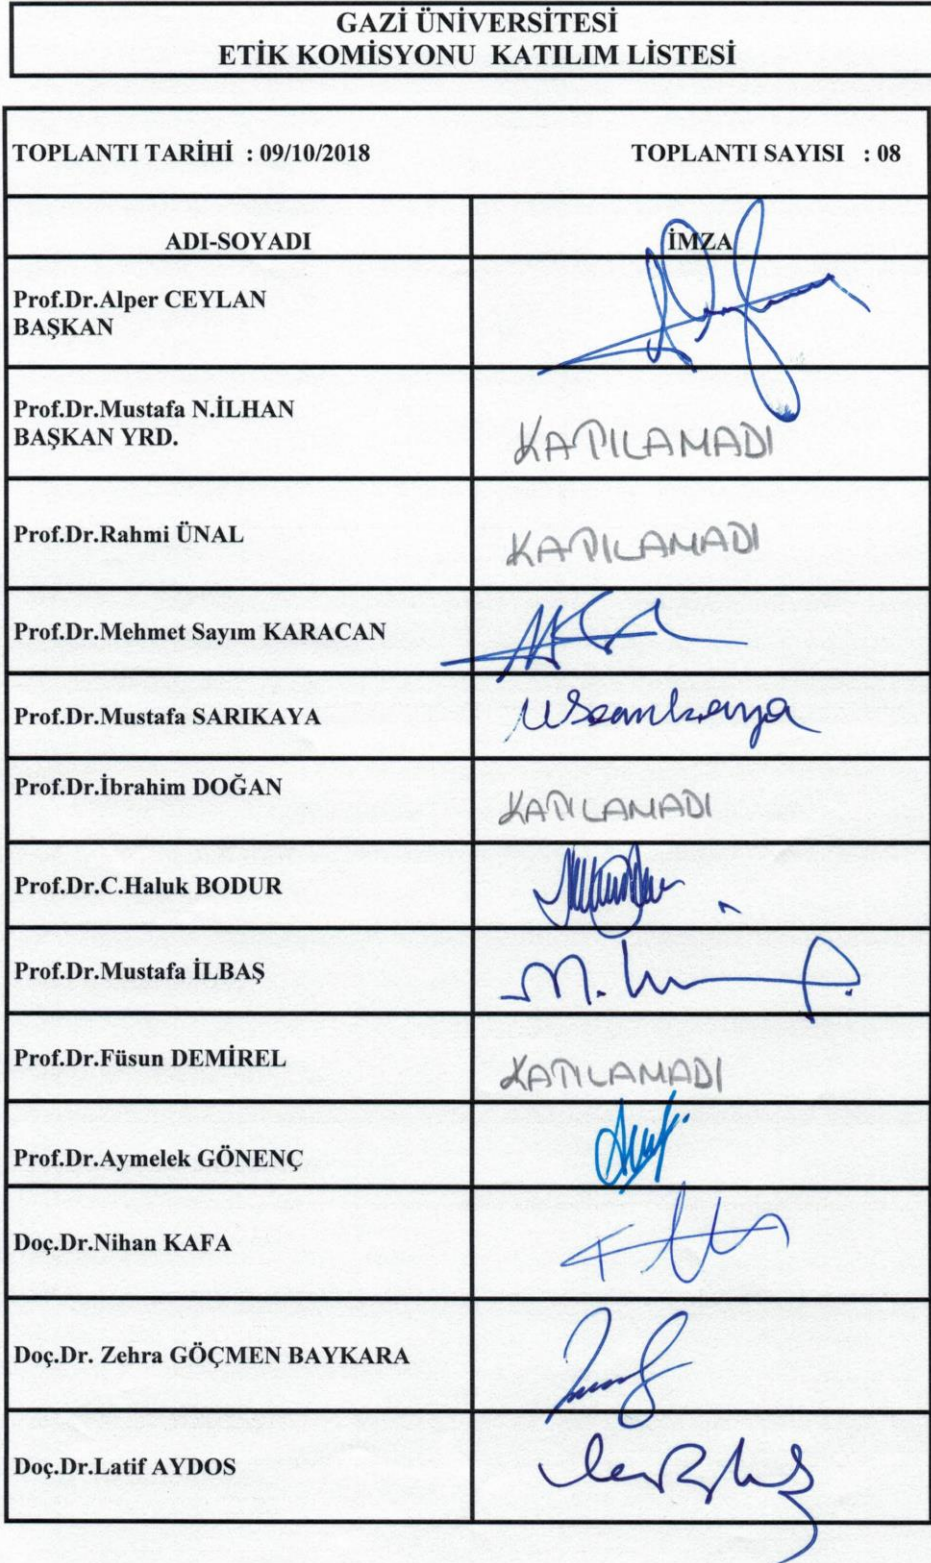 GAZİ ÜNİVERSİTESİ
ETİK KOMİSYONU KATILIM LİSTESİ
TOPLANTI TARİHİ : 09/10/2018 TOPLANTI SAYISI : 08
ADI-SOYADI İMZA
Prof.Dr.Alper CEYLAN
BAŞKAN
Prof.Dr.Mustafa N.İLHAN
BAŞKAN YRD.
KATILAMADI
Prof.Dr.Rahmi ÜNAL KATILAMADI
Prof.Dr.Mehmet Sayım KARACAN
Prof.Dr.Mustafa SARIKAYA
Prof.Dr.İbrahim DOĞAN KATILAMADI
Prof.Dr.C.Haluk BODUR
Prof.Dr.Mustafa İLBAŞ
Prof.Dr.Füsun DEMİREL KATILAMADI
Prof.Dr.Aymelek GÖNENÇ
Doç.Dr.Nihan KAFA
Doç.Dr. Zehra GÖÇMEN BAYKARA
Doç.Dr.Latif AYDOS